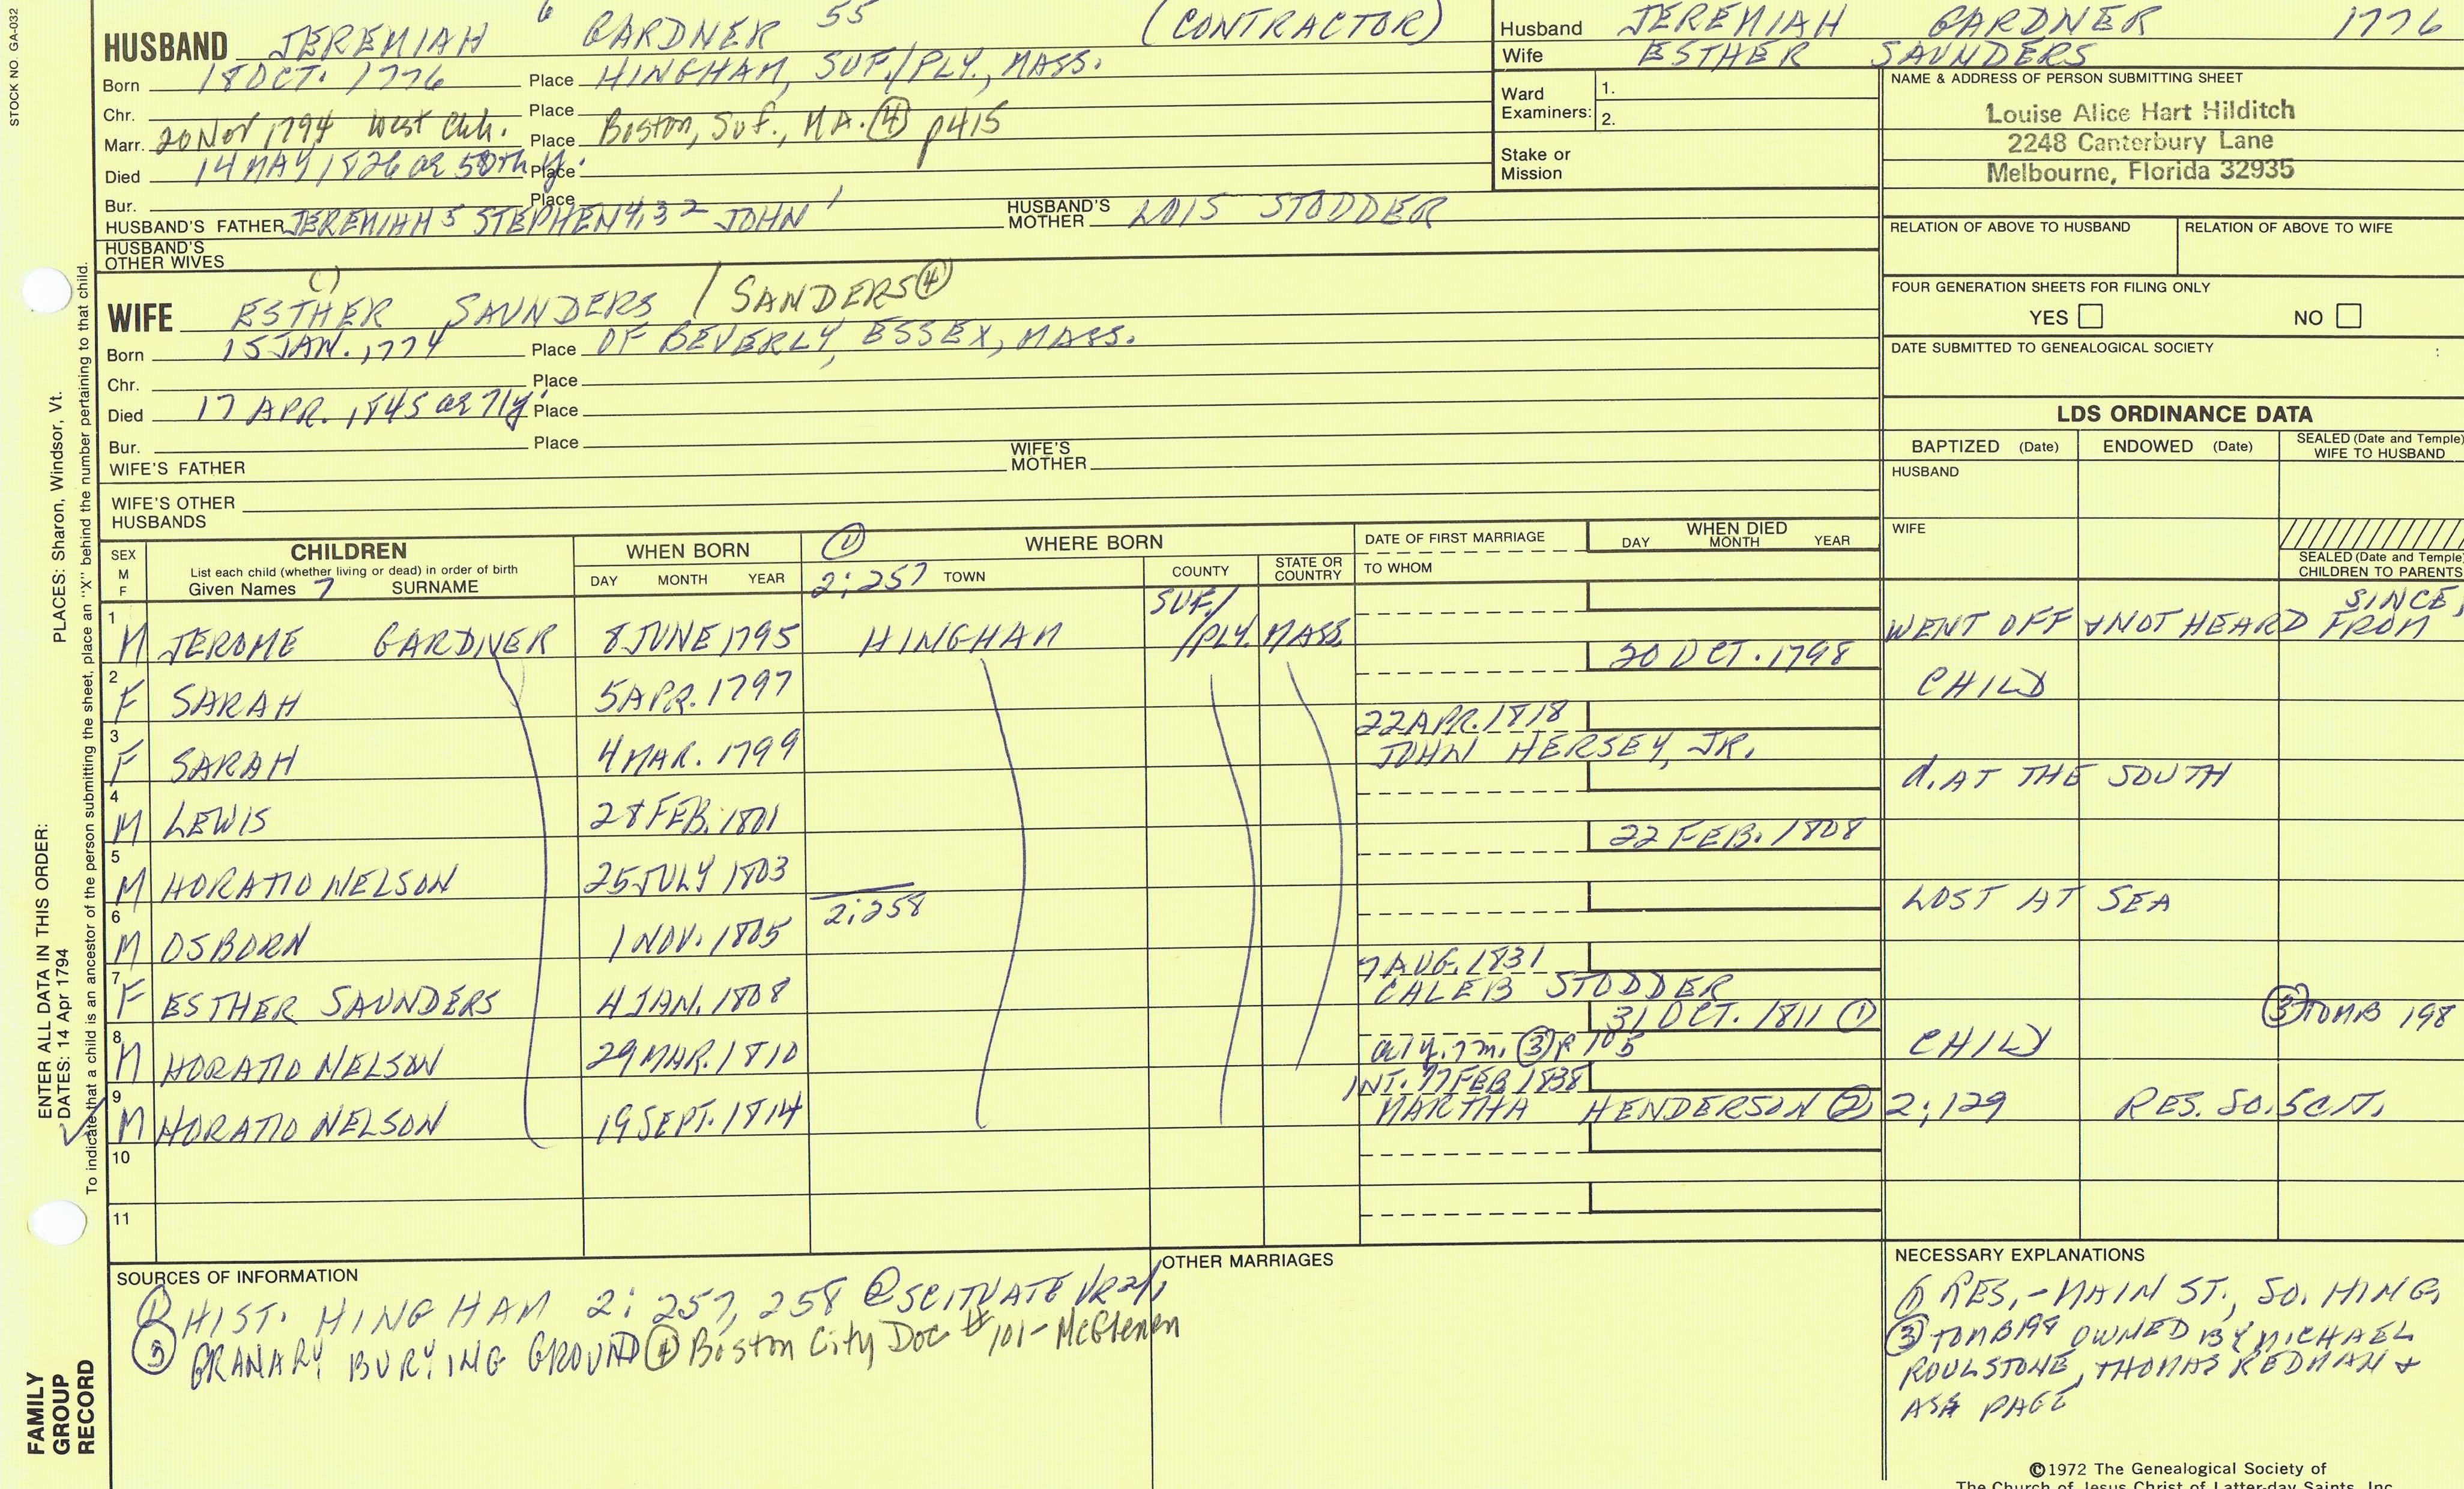 STOCK NO. GA-032
HUSBAND JEREMIAH 6 GARDNER 55 (CONTRACTOR)
Born 18 OCT. 1776 Place HINGHAM, SUF./PLY., MASS.
Chr. Place
Marr. 20 Nov 1794 West Chh. Place Boston, Suf., MA. ④ p415
Died 14 MAY 1826 ae 50th y. Place
Bur. Place
HUSBAND'S FATHER JEREMIAH 5 STEPHEN 4,3 2 JOHN 1 HUSBAND'S MOTHER LOIS STODDER
HUSBAND'S OTHER WIVES
WIFE ESTHER SAUNDERS / SANDERS ④
Born 15 JAN. 1774 Place OF BEVERLY, ESSEX, MASS.
Chr. Place
Died 17 APR. 1845 ae 71y. Place
Bur. Place
WIFE'S FATHER WIFE'S MOTHER
WIFE'S OTHER HUSBANDS
Husband JEREMIAH GARDNER 1776
Wife ESTHER SAUNDERS
Ward Examiners: 1.
2.
Stake or Mission
NAME & ADDRESS OF PERSON SUBMITTING SHEET
Louise Alice Hart Hilditch
2248 Canterbury Lane
Melbourne, Florida 32935
RELATION OF ABOVE TO HUSBAND RELATION OF ABOVE TO WIFE
FOUR GENERATION SHEETS FOR FILING ONLY
YES NO
DATE SUBMITTED TO GENEALOGICAL SOCIETY
LDS ORDINANCE DATA
BAPTIZED (Date) ENDOWED (Date) SEALED (Date and Temple) WIFE TO HUSBAND
HUSBAND
WIFE
SEALED (Date and Temple) CHILDREN TO PARENTS
SEX M F CHILDREN WHEN BORN ① WHERE BORN DATE OF FIRST MARRIAGE WHEN DIED
List each child (whether living or dead) in order of birth
Given Names 7 SURNAME DAY MONTH YEAR 2:257 TOWN COUNTY STATE OR COUNTRY TO WHOM DAY MONTH YEAR
1 M JEROME GARDNER 8 JUNE 1795 HINGHAM SUF./ /PLY. MASS. WENT OFF & NOT HEARD FROM SINCE,
2 F SARAH 5 APR. 1797 20 OCT. 1798 CHILD
3 F SARAH 4 MAR. 1799 22 APR. 1818 JOHN HERSEY, JR.
4 M LEWIS 28 FEB. 1801 d. AT THE SOUTH
5 M HORATIO NELSON 25 JULY 1803 22 FEB. 1808
6 M OSBORN 1 NOV. 1805 2:258 LOST AT SEA
7 F ESTHER SAUNDERS 4 JAN. 1808 7 AUG. 1831 CALEB STODDER
8 M HORATIO NELSON 29 MAR. 1810 31 OCT. 1811 ① ae 1y. 7m. ③ p 105 CHILD ③ TOMB 198
9 M HORATIO NELSON 19 SEPT. 1814 INT. 17 FEB 1838 MARTHA HENDERSON ② 2:129 RES. SO. SCIT.
10
11
SOURCES OF INFORMATION
① HIST. HINGHAM 2: 257, 258 ② SCITUATE VR 2/,
③ GRANARY BURYING GROUND ④ Boston City Doc # 101 - McGlenen
OTHER MARRIAGES
NECESSARY EXPLANATIONS
① RES. - MAIN ST., SO. HING.
③ TOMB 198 OWNED BY MICHAEL
ROULSTONE, THOMAS REDMAN &
ASA PAGE
©1972 The Genealogical Society of
The Church of Jesus Christ of Latter-day Saints, Inc.
ENTER ALL DATA IN THIS ORDER:
DATES: 14 Apr 1794 PLACES: Sharon, Windsor, Vt.
To indicate that a child is an ancestor of the person submitting the sheet, place an "X" behind the number pertaining to that child.
FAMILY
GROUP
RECORD